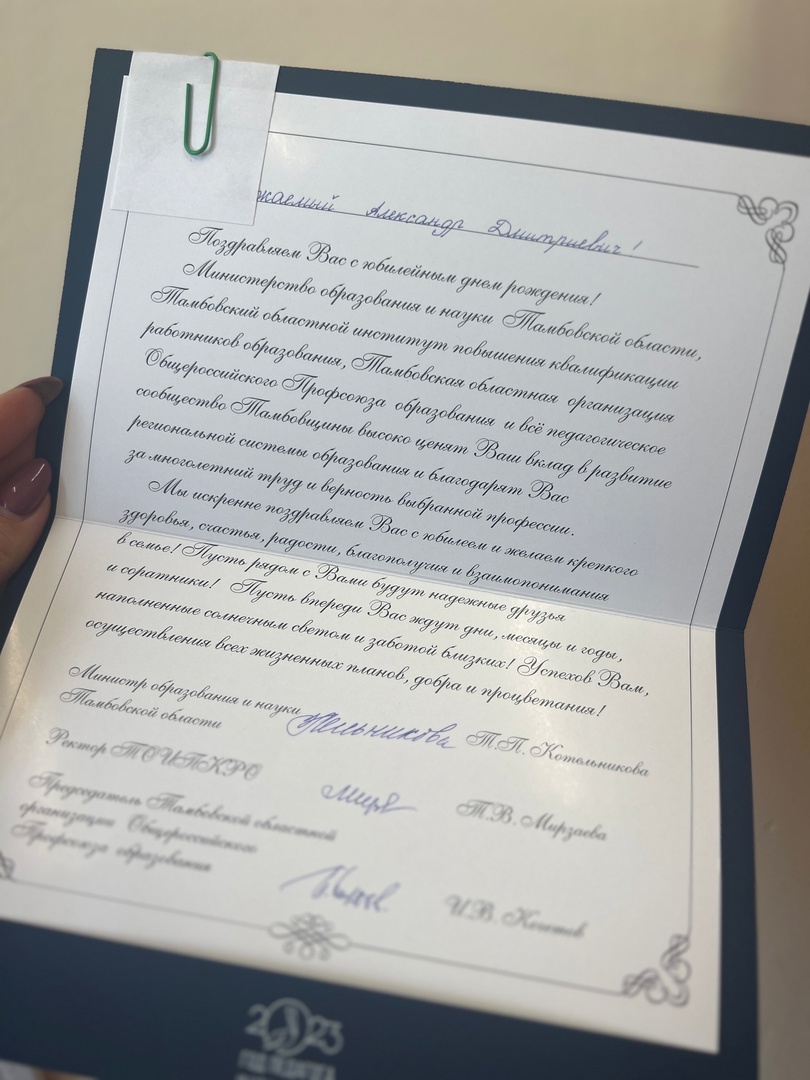 жаемый Александр Дмитриевич!
Поздравляем Вас с юбилейным днем рождения!
Министерство образования и науки Тамбовской области,
Тамбовский областной институт повышения квалификации
работников образования, Тамбовская областная организация
Общероссийского Профсоюза образования и всё педагогическое
сообщество Тамбовщины высоко ценят Ваш вклад в развитие
региональной системы образования и благодарят Вас
за многолетний труд и верность выбранной профессии.
Мы искренне поздравляем Вас с юбилеем и желаем крепкого
здоровья, счастья, радости, благополучия и взаимопонимания
в семье! Пусть рядом с Вами будут надежные друзья
и соратники! Пусть впереди Вас ждут дни, месяцы и годы,
наполненные солнечным светом и заботой близких! Успехов Вам,
осуществления всех жизненных планов, добра и процветания!
Министр образования и науки
Тамбовской области Т.П. Котельникова
Ректор ТОИПКРО Т.В. Мирзаева
Председатель Тамбовской областной
организации Общероссийского
Профсоюза образования И.В. Кочетов
2023
ГОД ПЕДАГОГА